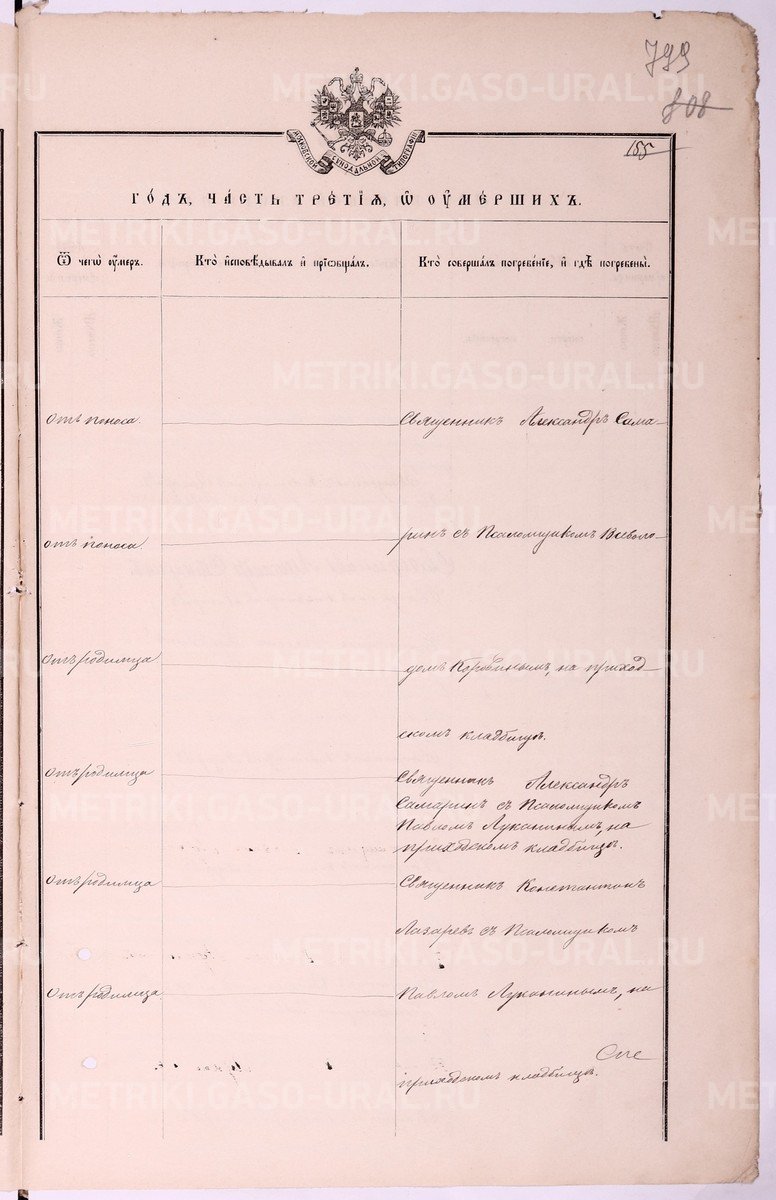 799
808
155
МОСКОВСКОЙ СѴНОДАЛЬНОЙ ТИПОГРАФІИ
ГО́ДЪ, ЧА́СТЬ ТРЕ́ТІЯ, Ѽ ОУ҆МЕ́РШИХЪ.
Ѿ чегѡ̀ оу҆́меръ.
Кто̀ и҆сповѣ́дывалъ и҆ прїѡбща́лъ.
Кто̀ соверша́лъ погребе́нїе, и҆ гдѣ̀ погребены̀.
отъ поноса.
Священникъ Александръ Сама-
отъ поноса.
ринъ съ Псаломщикомъ Всеволо-
отъ родимца
домъ Коровинымъ, на приход-
скомъ кладбищѣ.
отъ родимца
Священникъ Александръ
Самаринъ съ Псаломщикомъ
Павломъ Луканинымъ, на
приходскомъ кладбищѣ.
отъ родимца
Священникъ Константинъ
Лазаревъ съ Псаломщикомъ
отъ родимца
Павломъ Луканинымъ, на
приходскомъ кладбищѣ.
METRIKI.GASO-URAL.RU